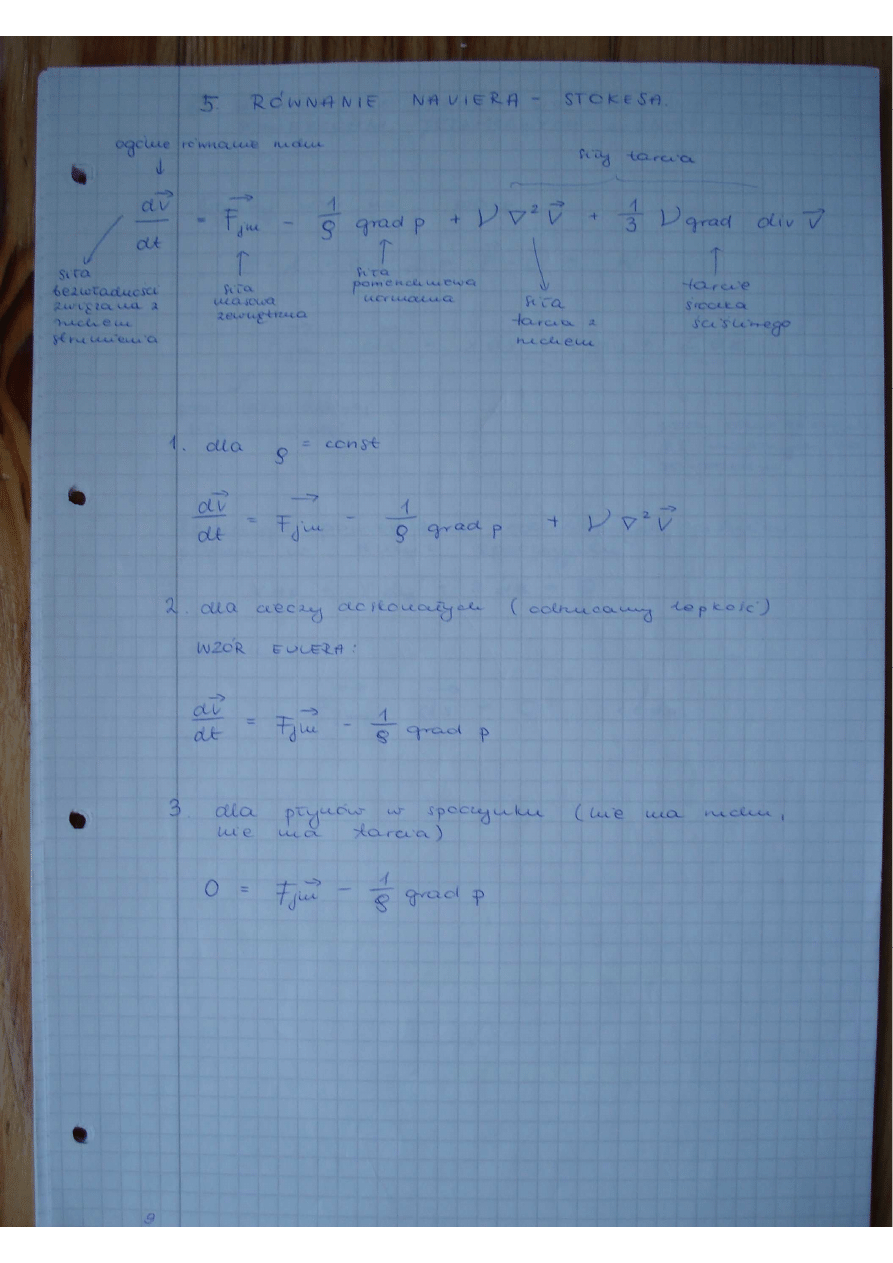 5. RÓWNANIE NAVIERA - STOKESA.
ogólne równanie ruchu
siły tarcia
dv⃗/dt = F⃗jm - 1/ρ grad p + ν ∇² v⃗ + 1/3 ν grad div v⃗
siła
bezwładności
związana z
ruchem
strumienia
siła
masowa
zewnętrzna
siła
powierzchniowa
normalna
siła
tarcia z
ruchem
tarcie
środka
ściśliwego
1. dla ρ = const
dv⃗/dt = F⃗jm - 1/ρ grad p + ν ∇² v⃗
2. dla cieczy doskonałych (odrzucamy lepkość)
WZÓR EULERA:
dv⃗/dt = F⃗jm - 1/ρ grad p
3. dla płynów w spoczynku (nie ma ruchu,
nie ma tarcia)
0 = F⃗jm - 1/ρ grad p
9